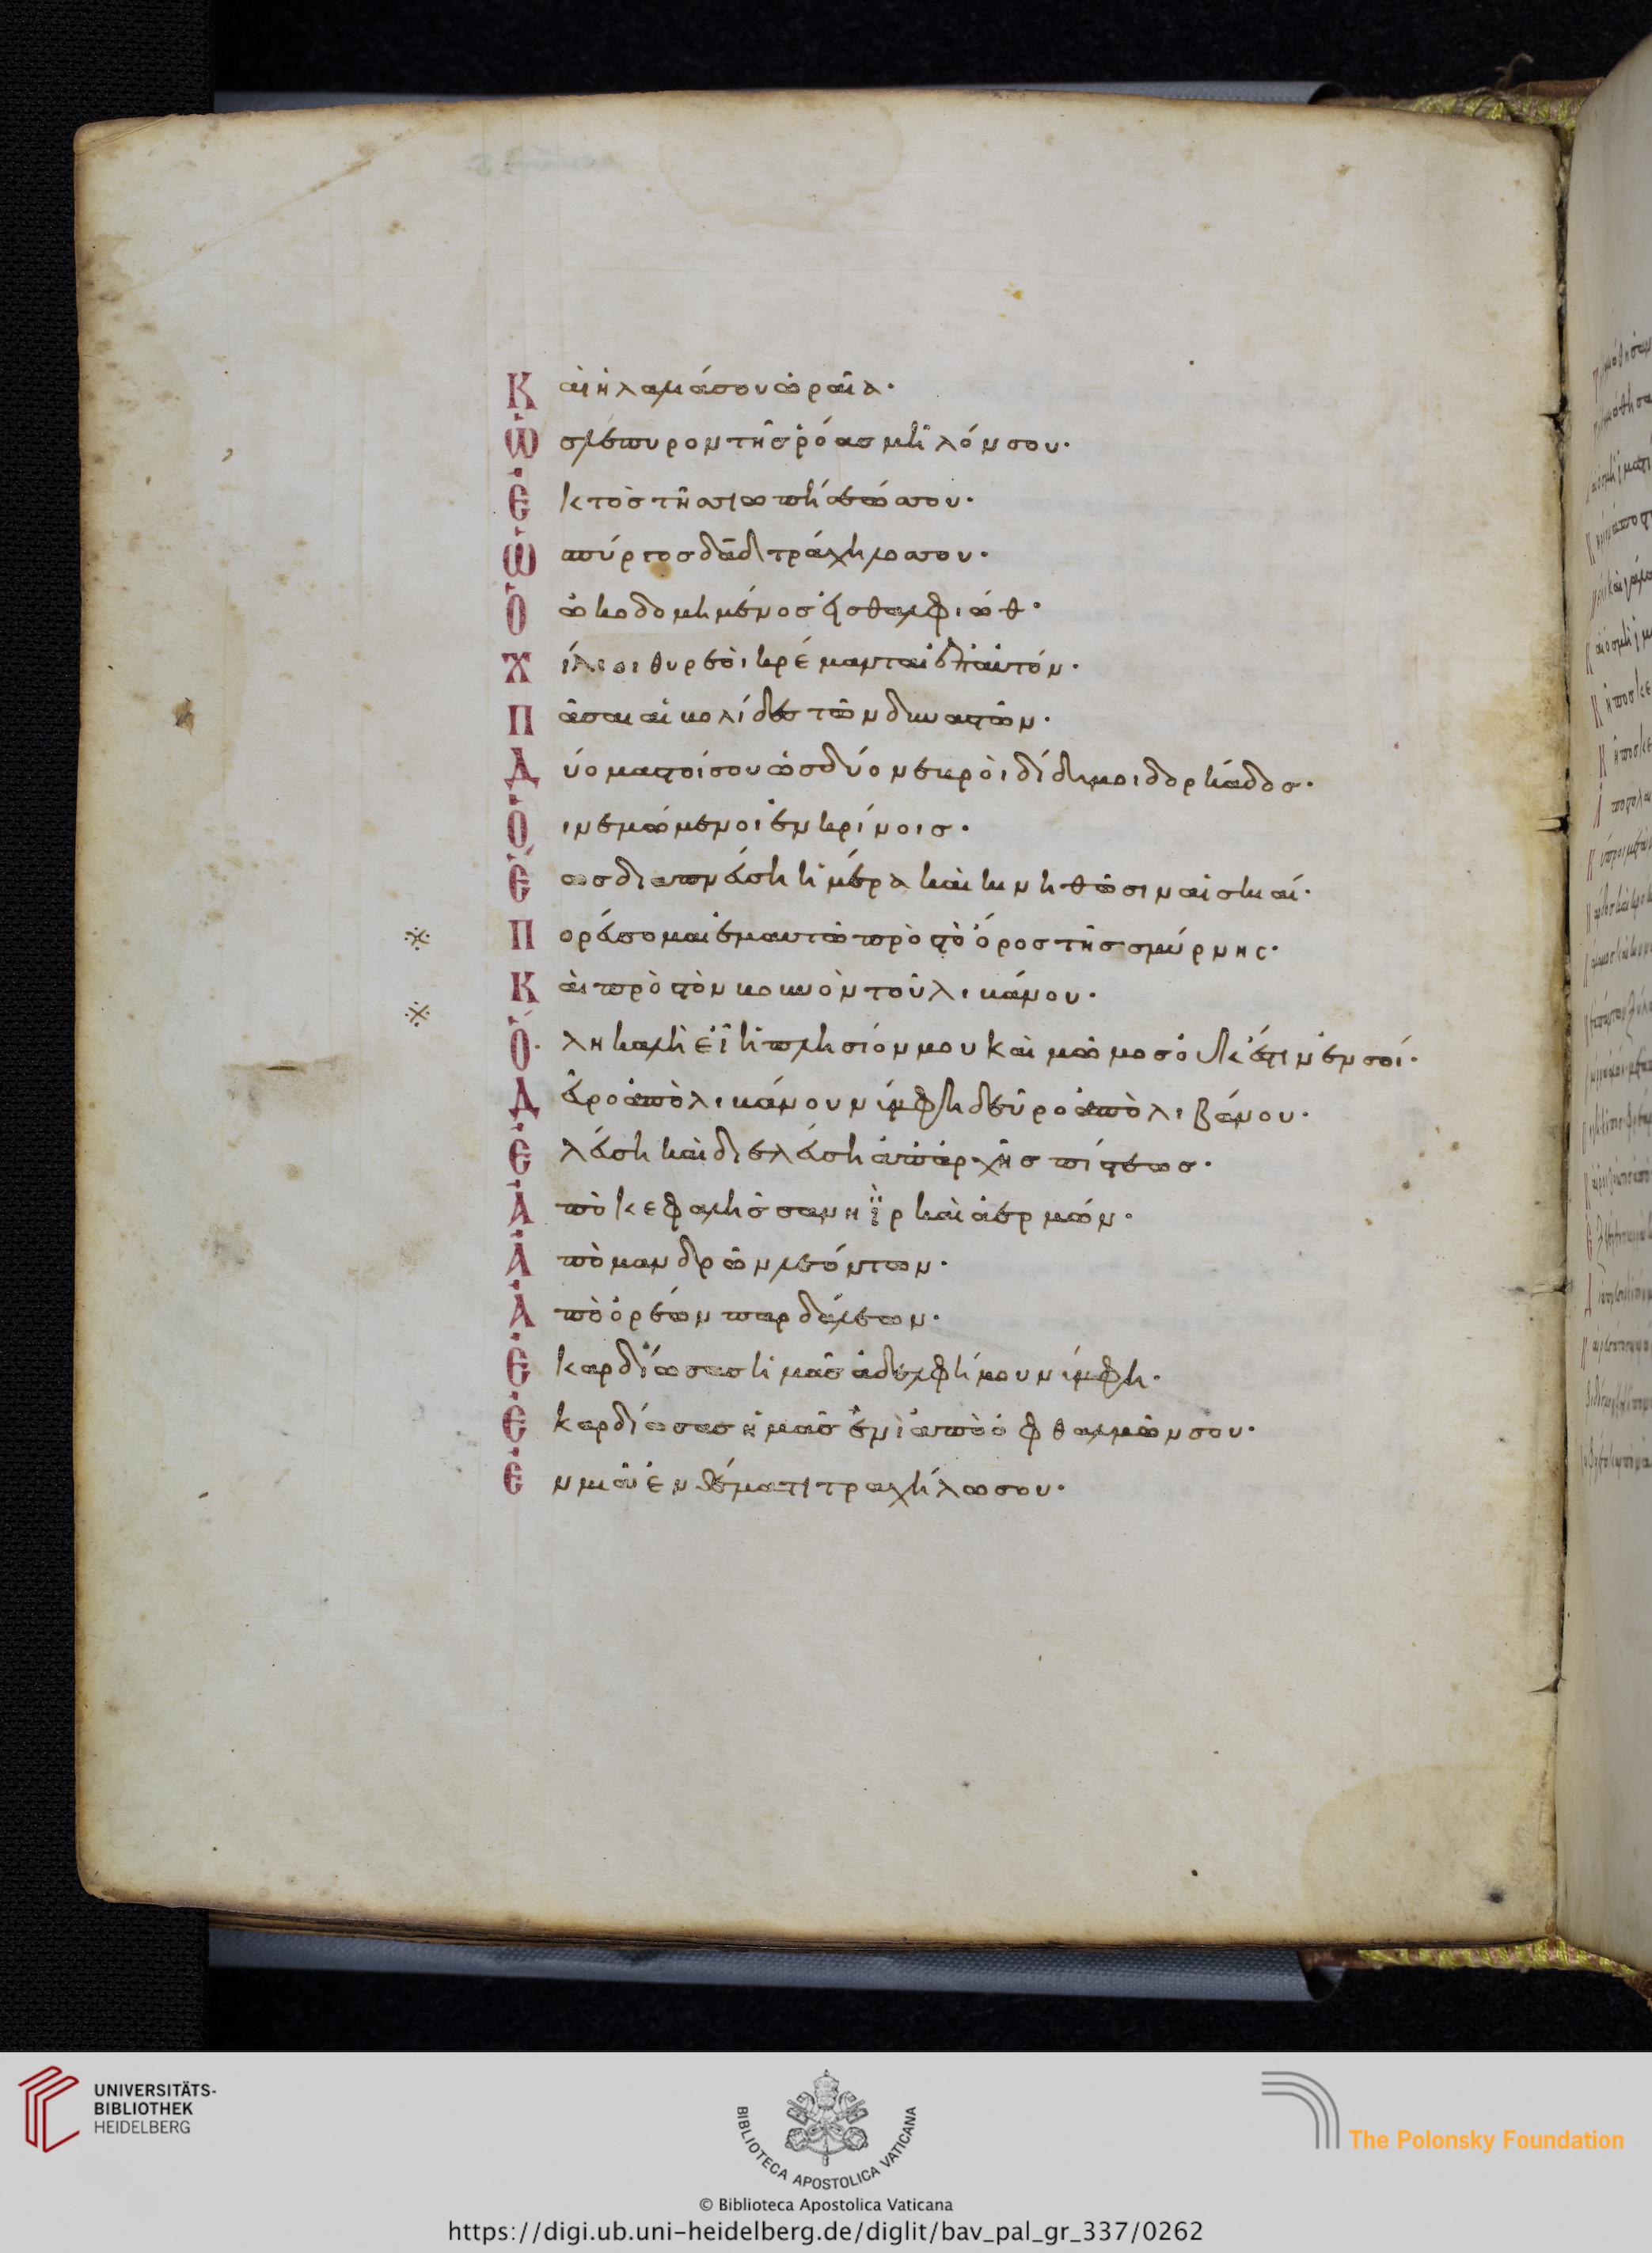 Καὶ ἡ λαλιά σου ὡραῖα·
Ὡς λέπυρον τῆς ῥόας μῆλόν σου·
Ἐκτὸς τῆς σιωπήσεώς σου·
Ὡς πύργος δαδ τράχηλος σου·
Ὁ ὠκοδομημένος εἰς θαλφιώθ·
Χίλιοι θυρεὸι κρέμανται ἐπ' ἀυτόν·
Πᾶσαι αἱ βολίδες τῶν δυνατῶν·
Δύο μαστοί σου ὡς δύο νεβρὸι δίδυμοι δορκάδος·
Ὁι νεμώμενοι ἐν κρίνοις·
Ἕως διαπνέυση ἡ μέρα καὶ κινηθῶσιν αἱ σκιαί·
Πορέυσομαι ἐμαυτῶ πρὸς τὸ ὄρος τῆς σμύρνης·
Κὰι πρὸς τὸν βουνὸν τοῦ λιβάνου·
Ὅλη καλὴ εἶ ἡ πλησιόν μου καὶ μῶμος ὀυκ ἔστιν ἐν σοί·
Δεῦρο ἀπὸ λιβάνου νύμφη δεῦρο ἀπὸ λιβάνου·
Ἐλέυση καὶ διελέυση ἀπ' ἀρχῆς πίστεως·
Ἀπὸ κεφαλῆς σανηῒρ καὶ ἀερμών·
Ἀπὸ μανδρῶν λεόντων·
Ἀπὸ ὀρέων παρδάλεων·
Ἐκαρδίωσας ἡμᾶς ἀδελφή μου νύμφη·
Ἐκαρδίωσας ἡμᾶς ἑνὶ ἀπὸ ὀφθαλμῶν σου·
Ἐν μιᾶ ἐνθέματι τραχήλω σου·
UNIVERSITÄTS-
BIBLIOTHEK
HEIDELBERG
BIBLIOTECA APOSTOLICA VATICANA
The Polonsky Foundation
© Biblioteca Apostolica Vaticana
https://digi.ub.uni-heidelberg.de/diglit/bav_pal_gr_337/0262